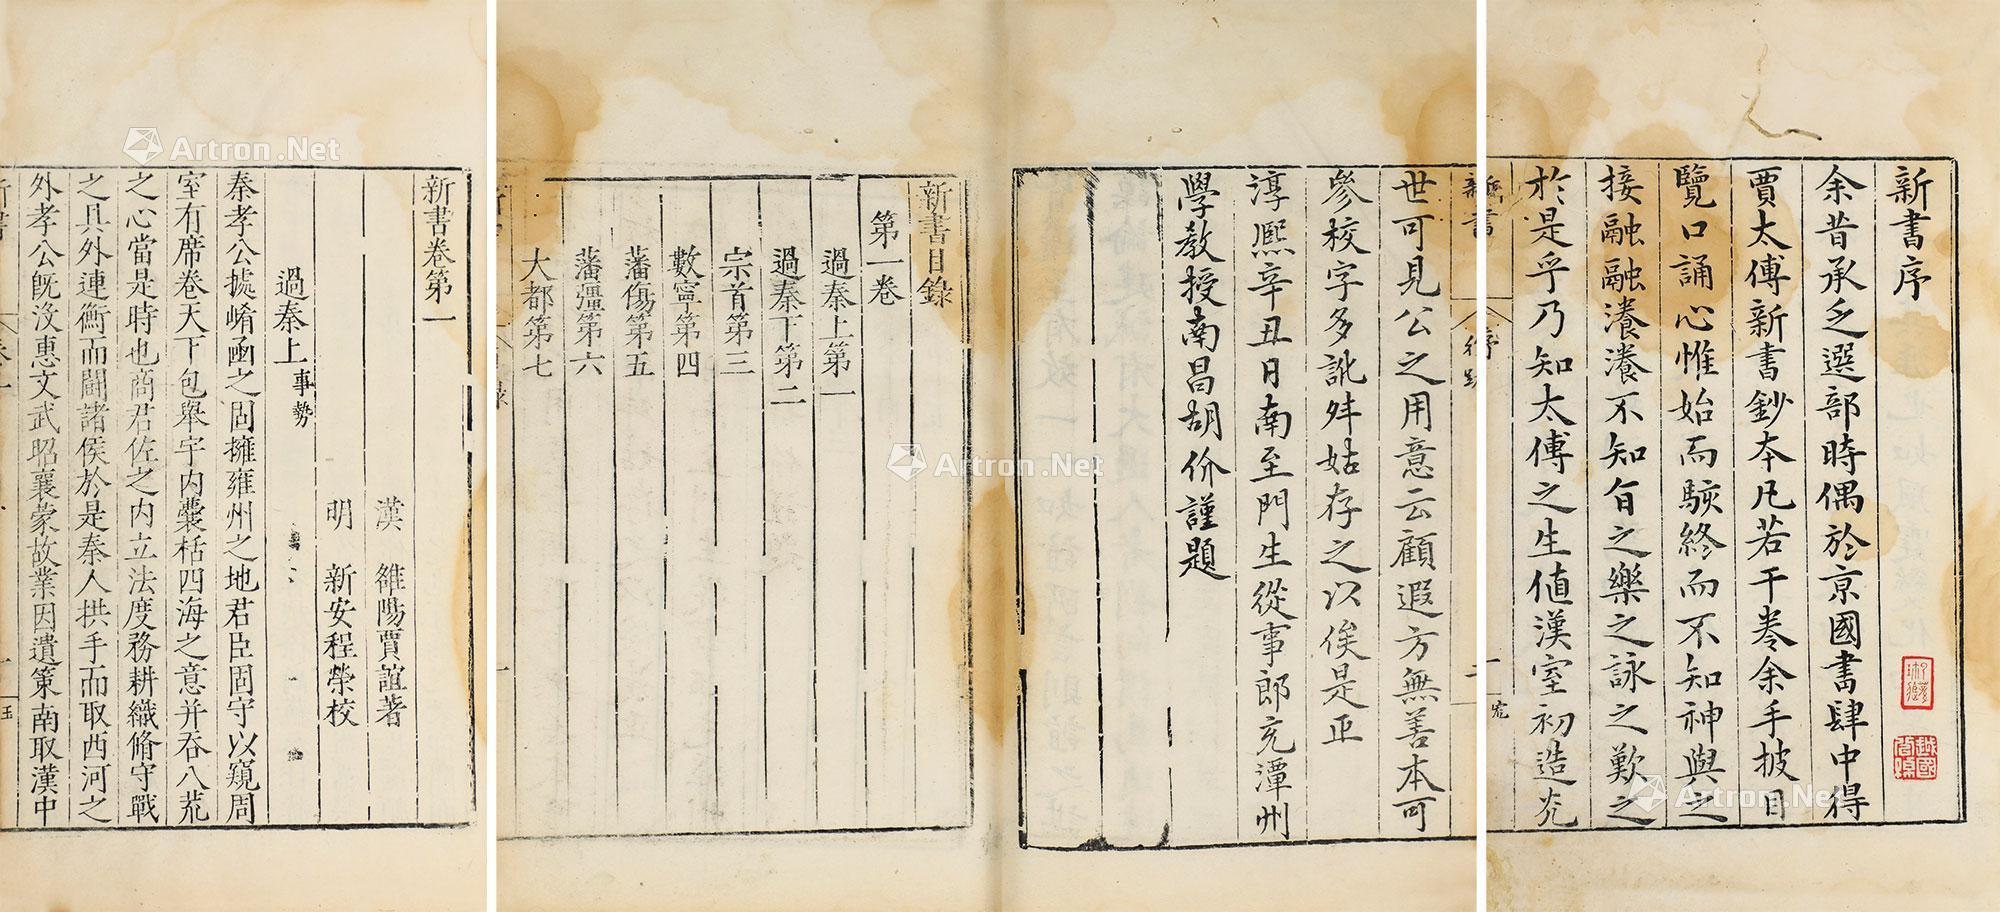 新書序
余昔承乏選部時偶於京國書肆中得
賈太傅新書鈔本凡若干卷余手披目
覽口誦心惟始而駭終而不知神與之
接融融瀁瀁不知旨之樂之詠之歎之
於是乎乃知太傅之生値漢室初造尤
新書
序
一
世可見公之用意云顧遐方無善本可
參校字多訛舛姑存之以俟是正
淳熙辛丑日南至門生從事郎充潭州
學教授南昌胡价謹題
新書目錄
第一卷
過秦上第一
過秦下第二
宗首第三
數寧第四
藩傷第五
藩彊第六
大都第七
新書卷第一
漢 雒陽賈誼著
明 新安程榮校
過秦上事勢
秦孝公據崤函之固擁雍州之地君臣固守以窺周
室有席卷天下包舉宇内囊括四海之意并吞八荒
之心當是時也商君佐之内立法度務耕織脩守戰
之具外連衡而鬭諸侯於是秦人拱手而取西河之
外孝公旣沒惠文武昭襄蒙故業因遺策南取漢中
Artron.Net
Artron.Net
Artron.Net